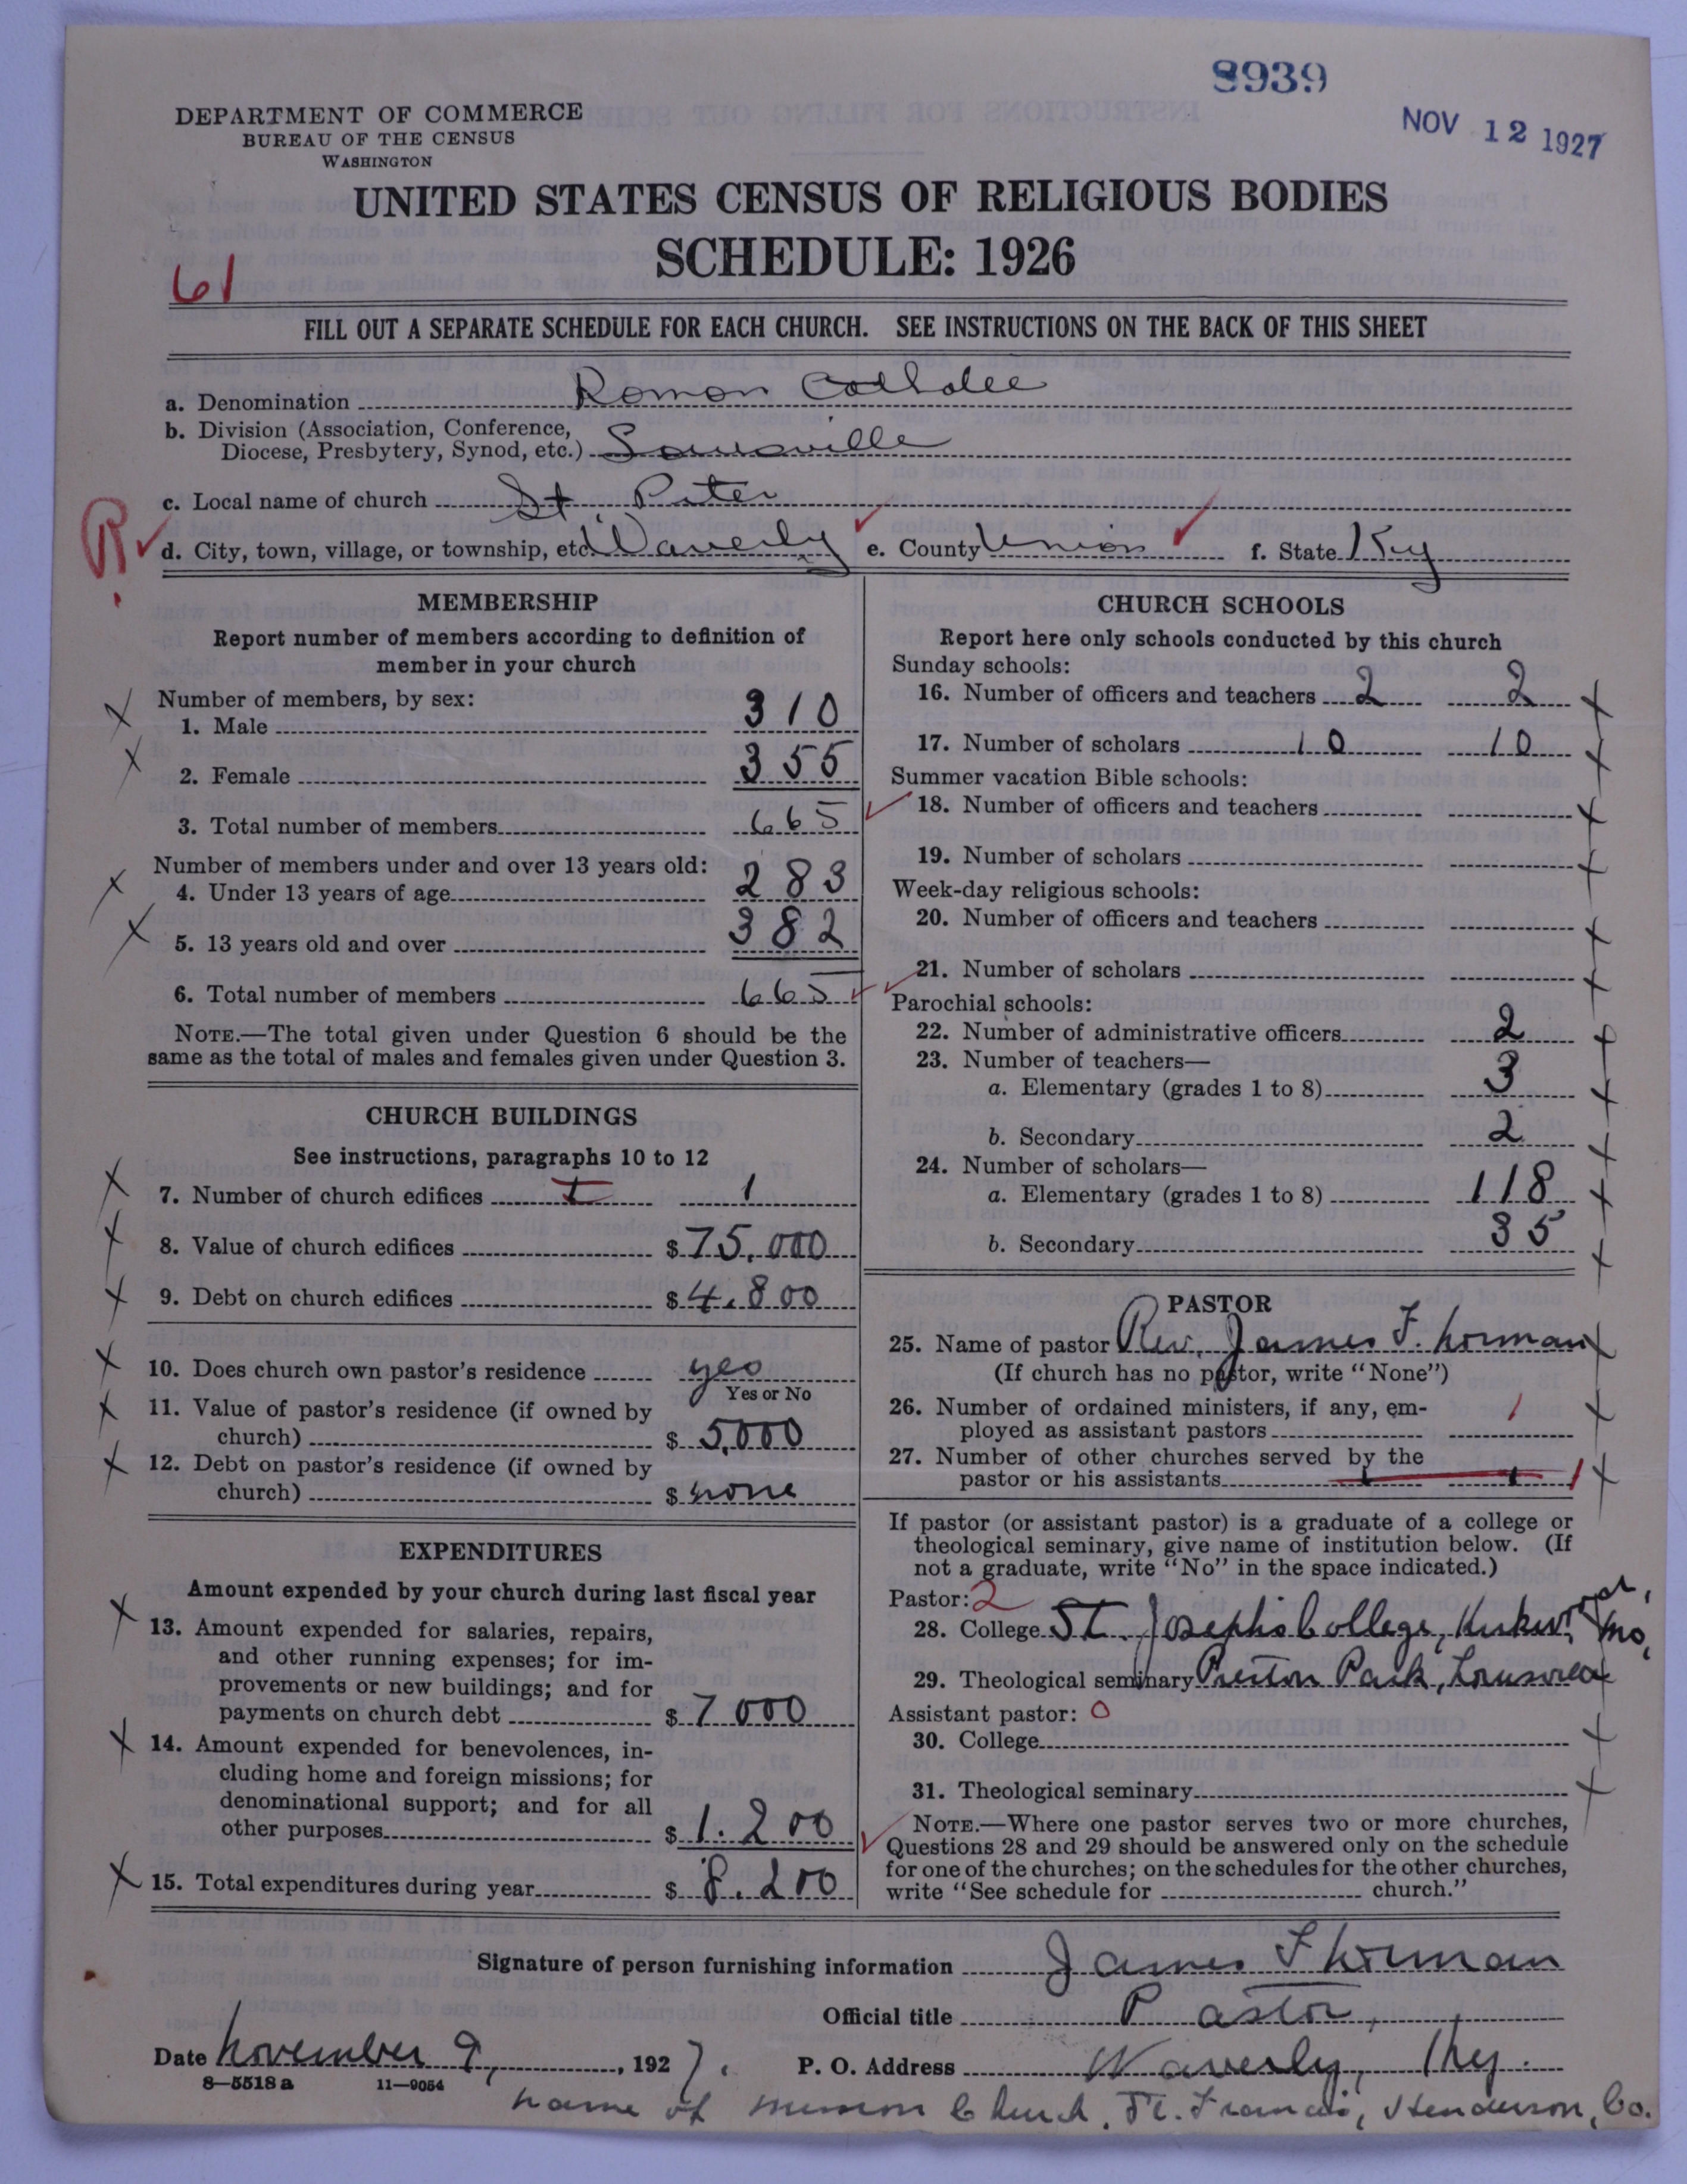 8939
NOV 12 1927
DEPARTMENT OF COMMERCE
BUREAU OF THE CENSUS
WASHINGTON
UNITED STATES CENSUS OF RELIGIOUS BODIES
SCHEDULE: 1926
61
FILL OUT A SEPARATE SCHEDULE FOR EACH CHURCH. SEE INSTRUCTIONS ON THE BACK OF THIS SHEET
a. Denomination Roman Catholic
b. Division (Association, Conference,
Diocese, Presbytery, Synod, etc.) Louisville
c. Local name of church St Peter
R
d. City, town, village, or township, etc. Waverly e. County Union f. State Ky
MEMBERSHIP
Report number of members according to definition of
member in your church
Number of members, by sex:
1. Male 310
2. Female 355
3. Total number of members 665
Number of members under and over 13 years old:
4. Under 13 years of age 283
5. 13 years old and over 382
6. Total number of members 665
NOTE.—The total given under Question 6 should be the
same as the total of males and females given under Question 3.
CHURCH BUILDINGS
See instructions, paragraphs 10 to 12
7. Number of church edifices I 1
8. Value of church edifices $75,000
9. Debt on church edifices $4,800
10. Does church own pastor's residence yes
Yes or No
11. Value of pastor's residence (if owned by
church) $5,000
12. Debt on pastor's residence (if owned by
church) $none
EXPENDITURES
Amount expended by your church during last fiscal year
13. Amount expended for salaries, repairs,
and other running expenses; for im-
provements or new buildings; and for
payments on church debt $7000
14. Amount expended for benevolences, in-
cluding home and foreign missions; for
denominational support; and for all
other purposes $1.200
15. Total expenditures during year $8.200
CHURCH SCHOOLS
Report here only schools conducted by this church
Sunday schools:
16. Number of officers and teachers 2 2
17. Number of scholars 10 10
Summer vacation Bible schools:
18. Number of officers and teachers
19. Number of scholars
Week-day religious schools:
20. Number of officers and teachers
21. Number of scholars
Parochial schools:
22. Number of administrative officers 2
23. Number of teachers—
a. Elementary (grades 1 to 8) 3
b. Secondary 2
24. Number of scholars—
a. Elementary (grades 1 to 8) 118
b. Secondary 35
PASTOR
25. Name of pastor Rev. James F.
(If church has no pastor, write "None")
26. Number of ordained ministers, if any, em-
ployed as assistant pastors 1
27. Number of other churches served by the
pastor or his assistants 1 1 1
If pastor (or assistant pastor) is a graduate of a college or
theological seminary, give name of institution below. (If
not a graduate, write "No" in the space indicated.)
Pastor: 2
28. College St. Josephs College, Mo,
29. Theological seminary Preston Park, Louisville
Assistant pastor: 0
30. College
31. Theological seminary
NOTE.—Where one pastor serves two or more churches,
Questions 28 and 29 should be answered only on the schedule
for one of the churches; on the schedules for the other churches,
write "See schedule for church."
Signature of person furnishing information James F
Official title Pastor,
Date November 9, 1927. P. O. Address Waverly, Ky.
8—5518 a 11—9054
name of mission Church, St. Francis, Henderson, Co.